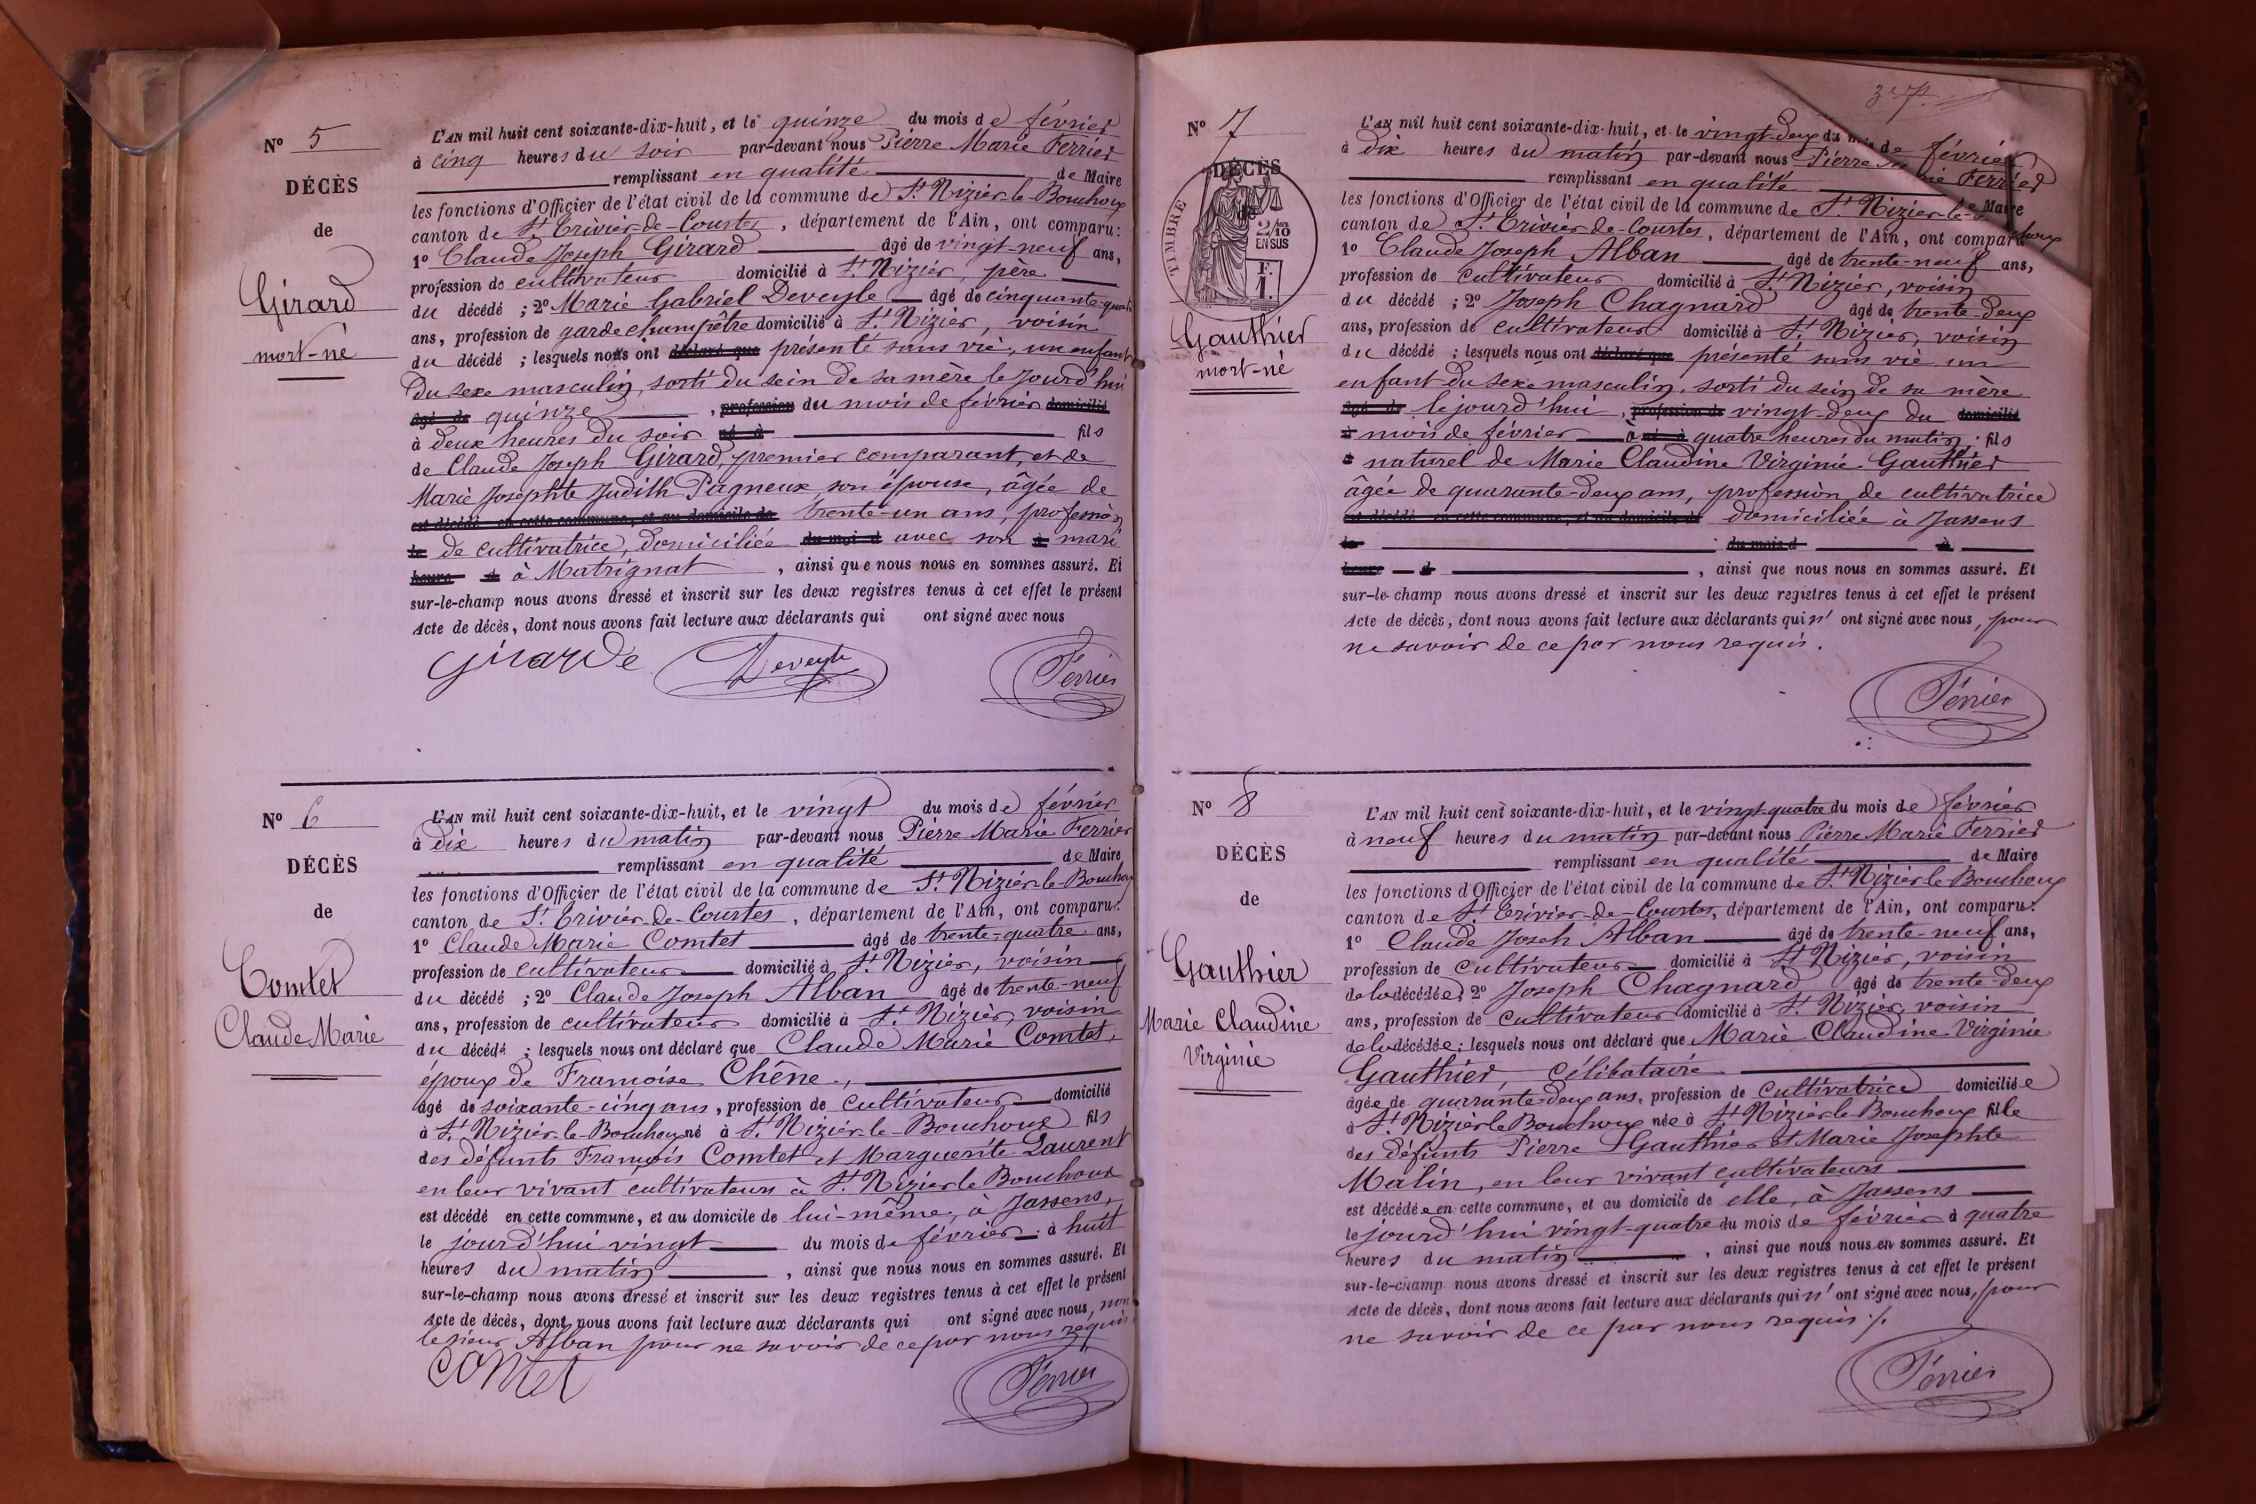 Nº 5
DÉCÈS
de
Girard
mort-né
L'AN mil huit cent soixante-dix-huit, et le quinze du mois de février
à cinq heures du soir par-devant nous Pierre Marie Ferrier
remplissant en qualité de Maire
les fonctions d'Officier de l'état civil de la commune de St Nizier-le-Bouchoux
canton de St Trivier-de-Courtes, département de l'Ain, ont comparu:
1º Claude Joseph Girard âgé de vingt-neuf ans,
profession de cultivateur domicilié à St Nizier, père
du décédé ; 2º Marie Gabriel Deveyle âgé de cinquante-quatre
ans, profession de garde champêtre domicilié à St Nizier, voisin
du décédé ; lesquels nous ont déclaré que présenté sans vie, un enfant
du sexe masculin, sorti du sein de sa mère le jourd'hui
âgé de quinze , profession du mois de février domicilié
à deux heures du soir né à fils
de Claude Joseph Girard, premier comparant, et de
Marie Josephte Judith Pagneux son épouse, âgée de
est décédé en cette commune, et au domicile de trente-un ans, profession
le de cultivatrice, domiciliée du moi d avec son à mari
heure d à Matrignat , ainsi que nous nous en sommes assuré. Et
sur-le-champ nous avons dressé et inscrit sur les deux registres tenus à cet effet le présent
Acte de décès, dont nous avons fait lecture aux déclarants qui ont signé avec nous
Girarde Deveyle Ferrier
Nº 6
DÉCÈS
de
Comtet
Claude Marie
L'AN mil huit cent soixante-dix-huit, et le vingt du mois de février
à dix heures du matin par-devant nous Pierre Marie Ferrier
remplissant en qualité de Maire
les fonctions d'Officier de l'état civil de la commune de St Nizier-le-Bouchoux
canton de St Trivier-de-Courtes, département de l'Ain, ont comparu:
1º Claude Marie Comtet âgé de trente-quatre ans,
profession de cultivateur domicilié à St Nizier, voisin
du décédé ; 2º Claude Joseph Alban âgé de trente-neuf
ans, profession de cultivateur domicilié à St Nizier, voisin
du décédé ; lesquels nous ont déclaré que Claude Marie Comtet,
époux de Françoise Chêne,
âgé de soixante-cinq ans, profession de cultivateur domicilié
à St Nizier-le-Bouchoux né à St Nizier-le-Bouchoux fils
des défunts François Comtet et Marguerite Laurent
en leur vivant cultivateurs à St Nizier le Bouchoux
est décédé en cette commune, et au domicile de lui-même, à Jassens,
le jourd'hui vingt du mois de février à huit
heures du matin , ainsi que nous nous en sommes assuré. Et
sur-le-champ nous avons dressé et inscrit sur les deux registres tenus à cet effet le présent
Acte de décès, dont nous avons fait lecture aux déclarants qui ont signé avec nous, non
le sieur Alban pour ne savoir de ce par nous requis
Comtet Ferrier
Nº 7
DÉCÈS
de
TIMBRE
2/10
EN SUS
F.
1.
Gauthier
mort-né
L'AN mil huit cent soixante-dix-huit, et le vingt-deux du mois de février
à dix heures du matin par-devant nous Pierre Marie Ferrier
remplissant en qualité de Maire
les fonctions d'Officier de l'état civil de la commune de St Nizier-le-Bouchoux
canton de St Trivier-de-Courtes, département de l'Ain, ont comparu
1º Claude Joseph Alban âgé de trente-neuf ans,
profession de cultivateur domicilié à St Nizier, voisin
du décédé ; 2º Joseph Chagnard âgé de trente-deux
ans, profession de cultivateur domicilié à St Nizier, voisin
du décédé ; lesquels nous ont déclaré que présenté sans vie un
enfant du sexe masculin, sorti du sein de sa mère
âgé de le jourd'hui, profession de vingt-deux du domicilié
à mois de février à né à quatre heures du matin, fils
naturel de Marie Claudine Virginie Gauthier
âgée de quarante-deux ans, profession de cultivatrice
est décédé en cette commune, et au domicile de domiciliée à Jassens
le du mois d à
heure d , ainsi que nous nous en sommes assuré. Et
sur-le-champ nous avons dressé et inscrit sur les deux registres tenus à cet effet le présent
Acte de décès, dont nous avons fait lecture aux déclarants qui n'ont signé avec nous, pour
ne savoir de ce par nous requis.
Ferrier
Nº 8
DÉCÈS
de
Gauthier
Marie Claudine
Virginie
L'AN mil huit cent soixante-dix-huit, et le vingt-quatre du mois de février
à neuf heures du matin par-devant nous Pierre Marie Ferrier
remplissant en qualité de Maire
les fonctions d'Officier de l'état civil de la commune de St Nizier le Bouchoux
canton de St Trivier-de-Courtes, département de l'Ain, ont comparu:
1º Claude Joseh Alban âgé de trente-neuf ans,
profession de cultivateur domicilié à St Nizier, voisin
de la décédée ; 2º Joseph Chagnard âgé de trente-deux
ans, profession de cultivateur domicilié à St Nizier, voisin
de la décédée ; lesquels nous ont déclaré que Marie Claudine Virginie
Gauthier, célibataire
âgée de quarante-deux ans, profession de cultivatrice domiciliée
à St Nizier le Bouchoux née à St Nizier le Bouchoux fille
des défunts Pierre Gauthier et Marie Josephte
Malin, en leur vivant cultivateurs
est décédée en cette commune, et au domicile de elle, à Jassens
le jourd'hui vingt-quatre du mois de février à quatre
heures du matin , ainsi que nous nous en sommes assuré. Et
sur-le-champ nous avons dressé et inscrit sur les deux registres tenus à cet effet le présent
Acte de décès, dont nous avons fait lecture aux déclarants qui n'ont signé avec nous, pour
ne savoir de ce par nous requis./.
Ferrier